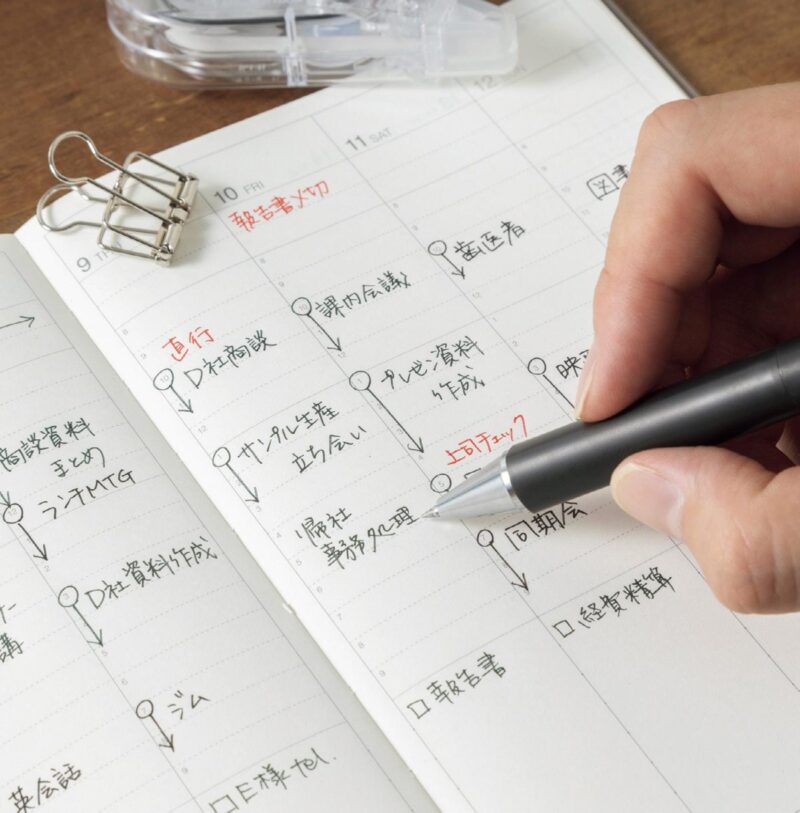 商談資料
まとめ
ランチMTG
D社資料作成
ジム
□ E様tel.
講
英会話
9
直行
D社商談
サンプル生産
立ち会い
帰社
事務処理
□ 報告書
10 FRI
報告書〆切
課内会議
プレゼン資料
作成
上司チェック
同期会
□ 経費精算
11 SAT
歯医者
映
12
図書